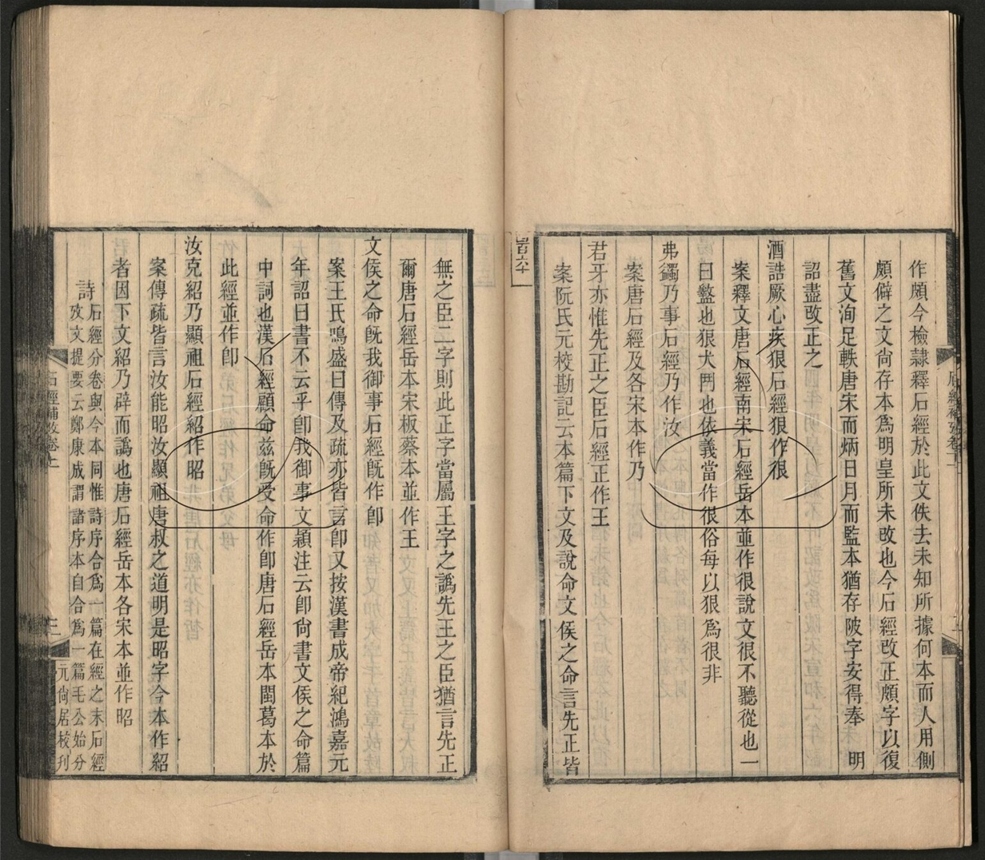 作頗今檢隸釋石經於此文佚去未知所據何本而人用側
頗僻之文尚存本爲明皇所未改也今石經改正頗字以復
舊文洵足軼唐宋而炳日月而監本猶存陂字安得奉 明
詔盡改正之
酒誥厥心疾狠石經狠作很
案釋文唐石經南宋石經岳本並作很說文很不聽從也一
曰盭也狠犬鬥也依義當作很俗每以狠爲很非
弗蠲乃事石經乃作汝
案唐石經及各宋本作乃
君牙亦惟先正之臣石經正作王
案阮氏元校勘記云本篇下文及說命文侯之命言先正皆
無之臣二字則此正字當屬王字之譌先王之臣猶言先正
爾唐石經岳本宋板蔡本並作王
文侯之命旣我御事石經旣作卽
案王氏鳴盛曰傳及疏亦皆言卽又按漢書成帝紀鴻嘉元
年詔曰書不云乎卽我御事文穎注云卽尚書文侯之命篇
中詞也漢石經顧命茲旣受命作卽唐石經岳本閩葛本於
此經並作卽
汝克紹乃顯祖石經紹作昭
案傳疏皆言汝能昭汝顯祖唐叔之道明是昭字今本作紹
者因下文紹乃辟而譌也唐石經岳本各宋本並作昭
詩
石經分卷與今本同惟詩序合爲一篇在經之末石經
攷文提要云鄭康成謂諸序本自合爲一篇毛公始分
石經補攷卷十一
三
元尚居校刋